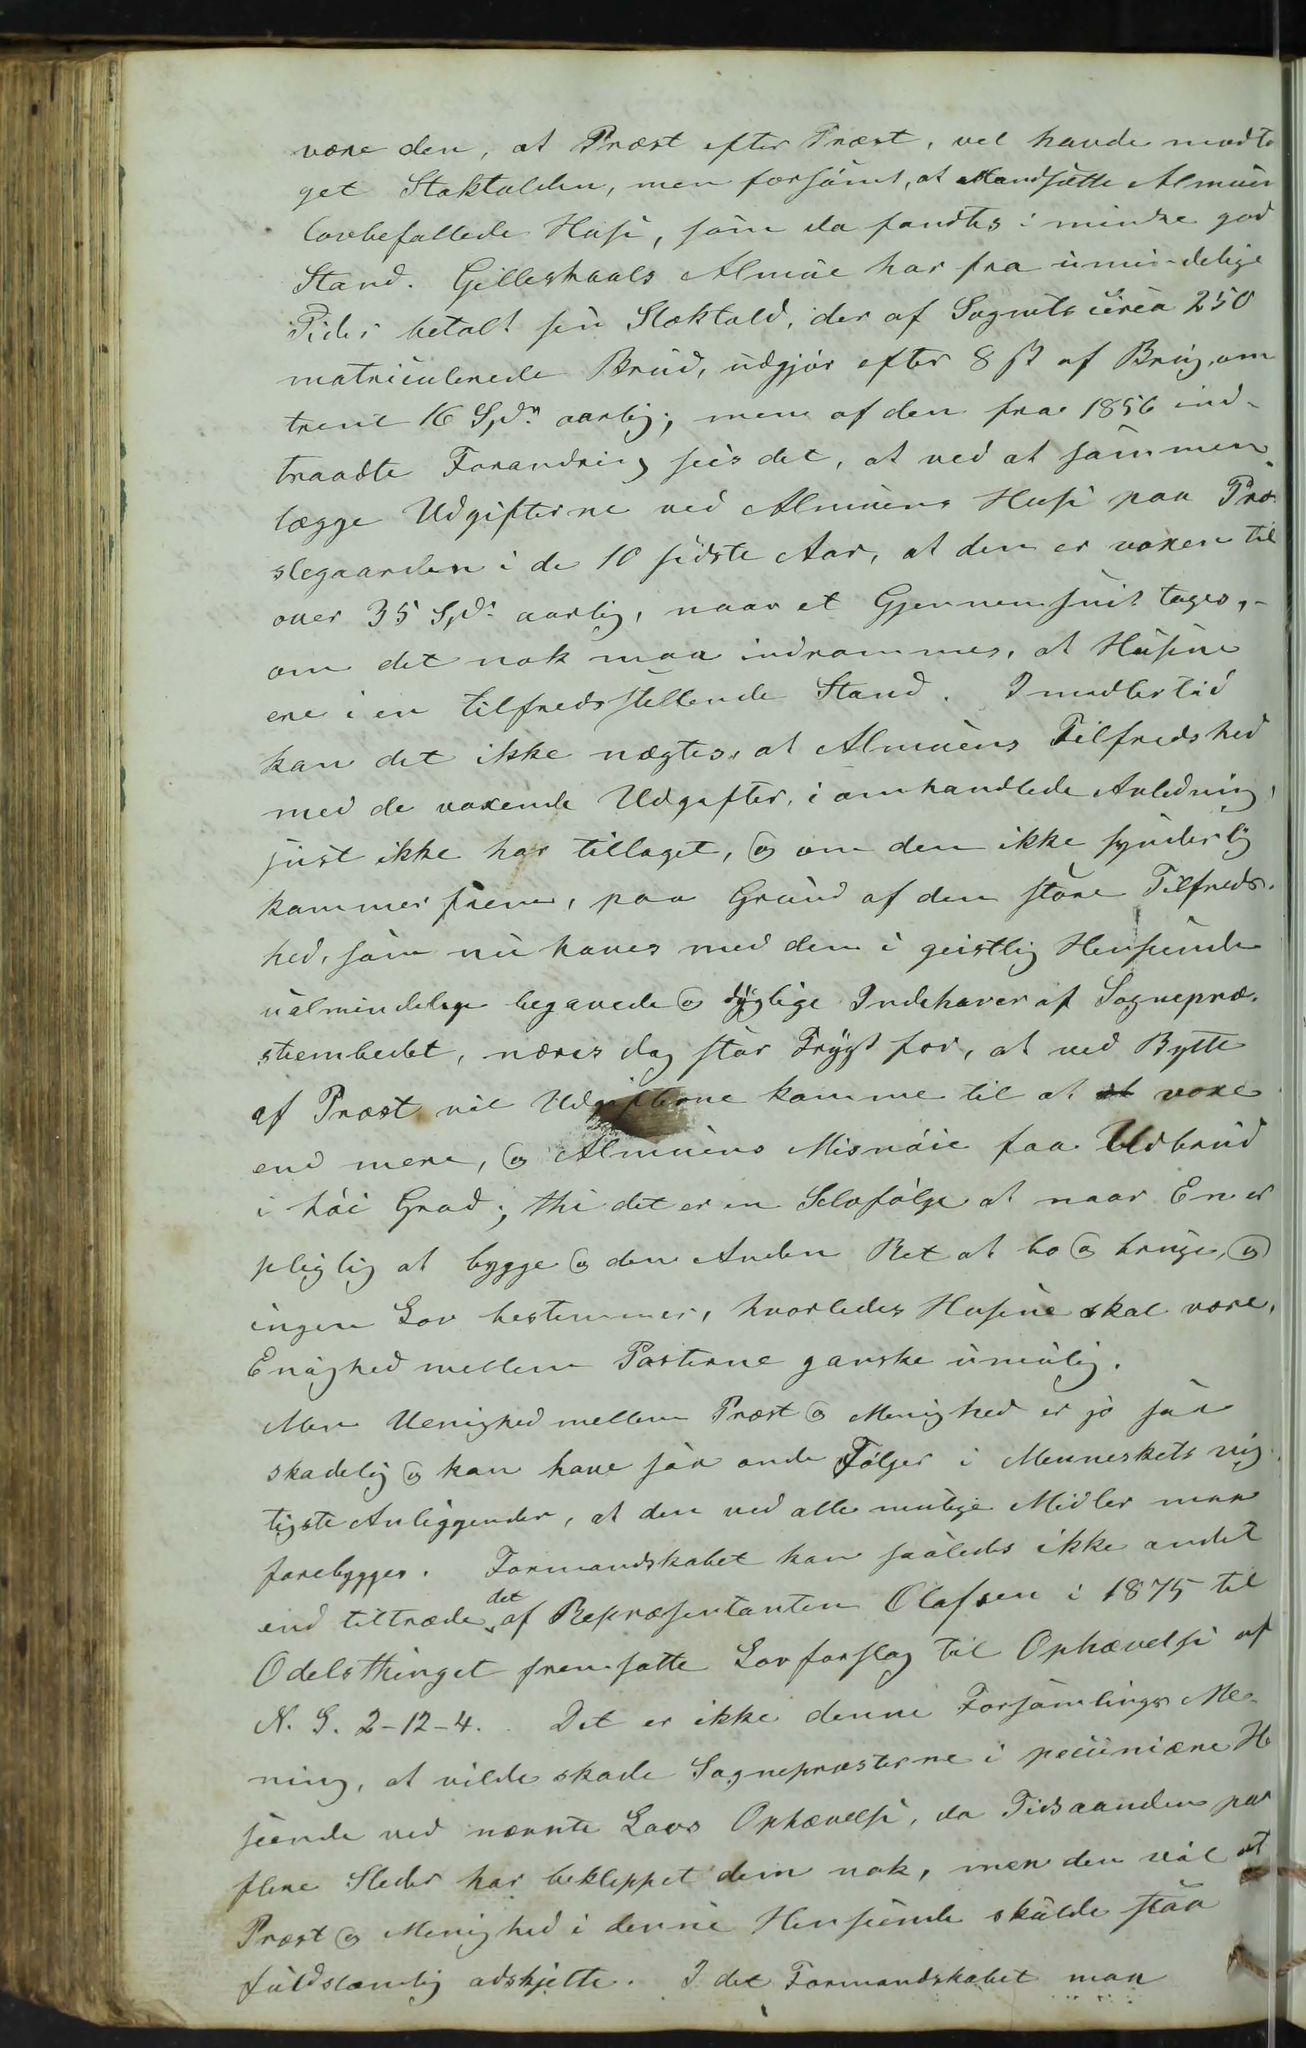 være den, at Præst efter Præst, vel havde modta
get Stoktolden, men forsömt, at istandsætte Almuens
lovbefallede Huse, som da fandtes i mindre god
Stand. Gilleskaals Almue har fra umindelige
Tider betalt sin Stoktold, der af Sognets circa 250
matriculerede Brug, udgjör efter 8 ß af Brug, om
trent 16 Spd. aarlig; men af den fra 1856 ind-
traadte Forandring sees det, at ved at sammen
lægge Udgifterne ved Almuens Huse paa Præ
stegaarden i de 10 sidste Aar, at den er voxen til
over 35 Spd. aarlig, naar et Gjennemsnit tages, -
om det nok maa indrømmes, at Husene
ere i en tilfredsstellende Stand. Imidlertid
kan det ikke nægtes, at Almuens Tilfredshed
med de voxende Udgifter, i omhandlede Anledning,
just ikke har tiltaget, og om den ikke synderlig
kommer frem, paa Grund af den store Tilfreds-
hed, som nu haves med den i geistlig Henseende
ualmindelige begavede og dyglige Indehaver af Sognepræ-
steembedet, næres dog stor Frygt for, at ved Bytte
af Præst vil Udgifterne komme til at voxe
end mere, og Almuens Misnöie faa Udbrud
i höi Grad; thi det er en Selvfölge at naar En er
pligtig at bygge og den Anden Ret at bo og bruge, og
ingen Lov bestemmer, hvorledes Husene skal være,
Enighed mellem Parterne ganske umulig.
Men Uenighed mellem Præst og Menighed er jo saa
skadelig og kan have saa onde Fölger i Menneskets vig
tigste Anliggender, at den ved alle mulige Midler maa
forebygges. Formandskabet kan saaledes ikke andet
end tiltræde det af Repræsentanten Olafsen i 1875 til
Odelsthinget fremsatte Lovforslag til Ophævelse af
N. L. 2-12-4. Det er ikke denne Forsamlings Me-
ning, at vilde skade Sognepræsterne i pecuniære Hen
seende ved nævnte Lovs Ophævelse, da Tidsaanden paa
flere Steder har beklippet dem nok, men den vil at
Præst og Menighed i denne Henseende skulde staa
fuldstændig adskjelte. I det Formandskabet maa